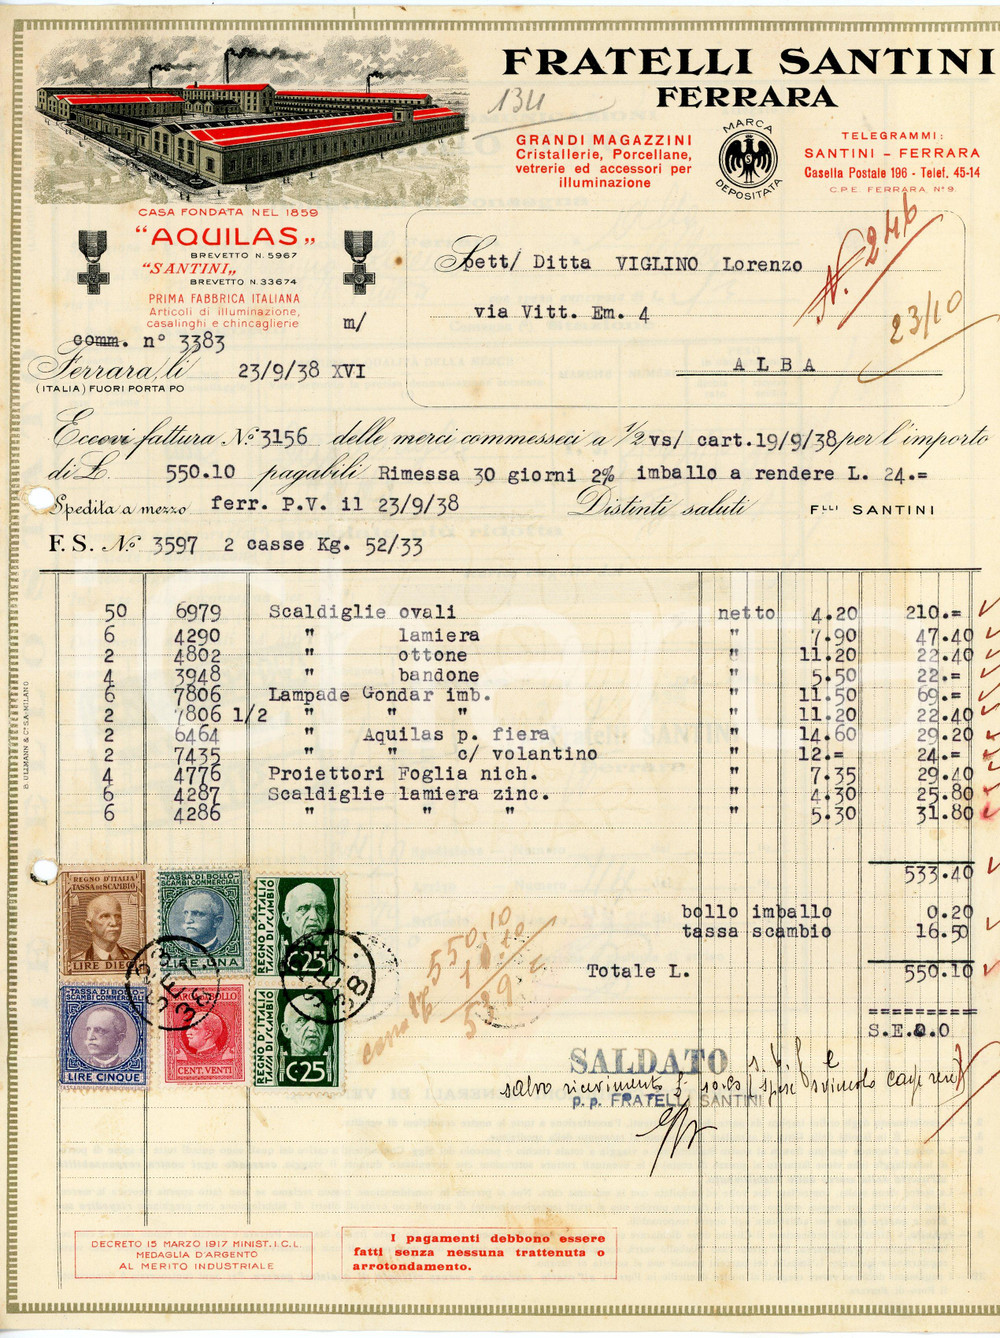 FRATELLI SANTINI
FERRARA
134
GRANDI MAGAZZINI
Cristallerie, Porcellane,
vetrerie ed accessori per
illuminazione
MARCA
DEPOSITATA
TELEGRAMMI:
SANTINI - FERRARA
Casella Postale 196 - Telef. 45-14
C.P.E. FERRARA, N° 9
CASA FONDATA NEL 1859
"AQUILAS„
BREVETTO N. 5967
"SANTINI„
BREVETTO N. 33674
PRIMA FABBRICA ITALIANA
Articoli di illuminazione,
casalinghi e chincaglierie
m/
comm. n° 3383
Ferrara, li 23/9/38 XVI
(ITALIA) FUORI PORTA PO
Spett/ Ditta VIGLINO Lorenzo
via Vitt. Em. 4
ALBA
N. 246
23/10
Eccovi fattura N° 3156 delle merci commesseci a 1/2 vs/ cart.19/9/38 per l'importo
di L. 550.10 pagabili Rimessa 30 giorni 2% imballo a rendere L. 24.=
Spedita a mezzo ferr. P.V. il 23/9/38 Distinti saluti Flli SANTINI
F. S. N° 3597 2 casse Kg. 52/33
50 6979 Scaldiglie ovali netto 4.20 210.=
6 4290 " lamiera " 7.90 47.40
2 4802 " ottone " 11.20 22.40
4 3948 " bandone " 5.50 22.=
6 7806 Lampade Gondar imb. " 11.50 69.=
2 7806 1/2 " " " " 11.20 22.40
2 6464 " Aquilas p. fiera " 14.60 29.20
2 7435 " " c/ volantino " 12.= 24.=
4 4776 Proiettori Foglia nich. " 7.35 29.40
6 4287 Scaldiglie lamiera zinc. " 4.30 25.80
6 4286 " " " " 5.30 31.80
533.40
bollo imballo 0.20
tassa scambio 16.50
Totale L. 550.10
S.E.O.O
B. ULLMANN & C° S.A. MILANO
REGNO D'ITALIA
TASSA DI SCAMBIO
LIRE DIECI
TASSA DI BOLLO
SCAMBI COMMERCIALI
LIRE UNA
REGNO D'ITALIA
TASSA DI SCAMBIO
C.25
TASSA DI BOLLO
SCAMBI COMMERCIALI
LIRE CINQUE
MARCA DA BOLLO
CENT. VENTI
REGNO D'ITALIA
TASSA DI SCAMBIO
C.25
23 SET. 38
23 SET. 38
550.10
539
SALDATO
salvo ricevimento
p. p. FRATELLI SANTINI
DECRETO 15 MARZO 1917 MINIST. I.C.L.
MEDAGLIA D'ARGENTO
AL MERITO INDUSTRIALE
I pagamenti debbono essere
fatti senza nessuna trattenuta o
arrotondamento.